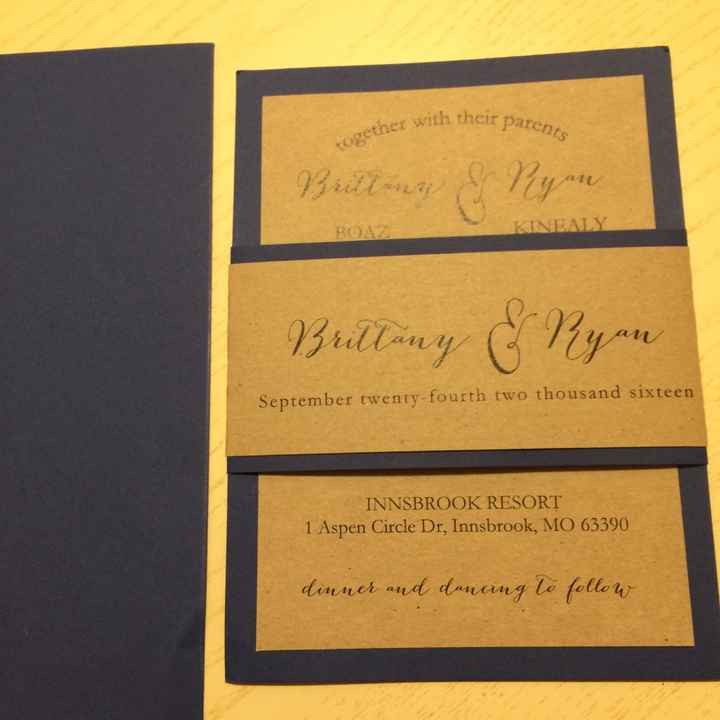 together with their parents
Brittany & Ryan
BOAZ KINEALY
Brittany & Ryan
September twenty-fourth two thousand sixteen
INNSBROOK RESORT
1 Aspen Circle Dr, Innsbrook, MO 63390
dinner and dancing to follow